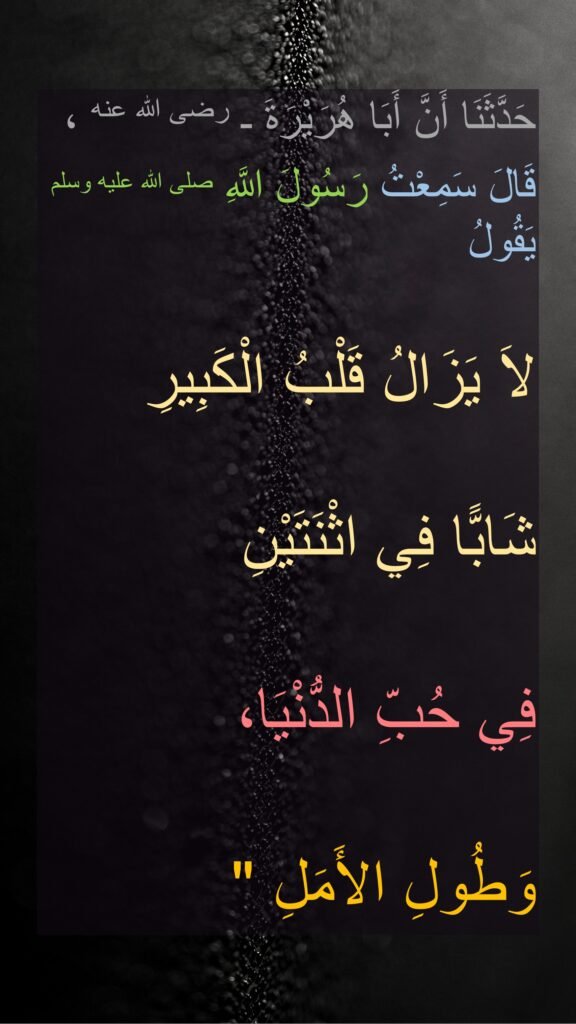 حَدَّثَنَا أَنَّ أَبَا هُرَيْرَةَ ـ رضى الله عنه ،
قَالَ سَمِعْتُ رَسُولَ اللَّهِ صلى الله عليه وسلم
يَقُولُ
لاَ يَزَالُ قَلْبُ الْكَبِيرِ
شَابًّا فِي اثْنَتَيْنِ
فِي حُبِّ الدُّنْيَا،
وَطُولِ الأَمَلِ "